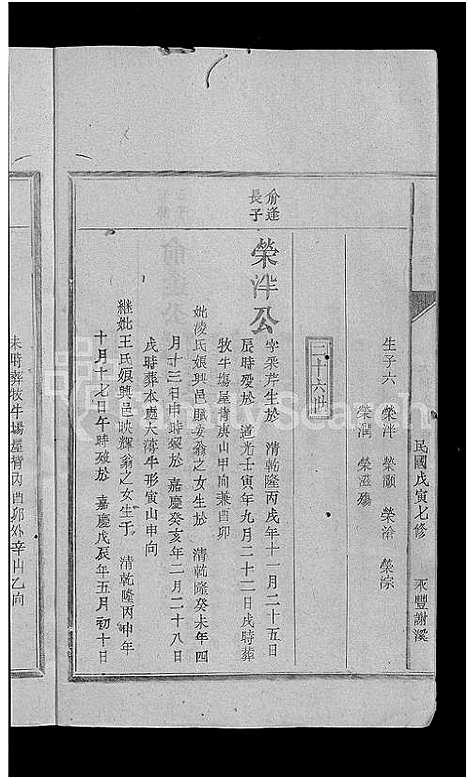 民國戊寅七修 永豐謝溪
生子六 榮泮 榮灝 榮治 榮淙
榮潤 榮滋殤
三十六世
俞逢
長子
榮泮公
字采芹生於 清乾隆丙戌年十一月二十五日
辰時歿於 道光壬寅年九月二十二日戌時葬
牧牛場屋背庚山甲向兼酉卯
妣凌氏娘興邑 翁之女生於 清乾隆癸未年四
月十三日申時歿於 嘉慶癸亥年二月二十八日
戌時葬本處大 牛形寅山申向
繼妣王氏娘興邑映輝翁之女生于 清乾隆丙申年
十月十七日午時歿於 嘉慶戊辰年五月初十日
未時葬牧牛場屋背丙 酉卯外辛山乙向